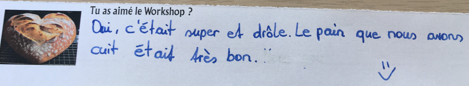 Tu as aimé le Workshop ?
Oui, c'était super et drôle. Le pain que nous avons
cuit était très bon.